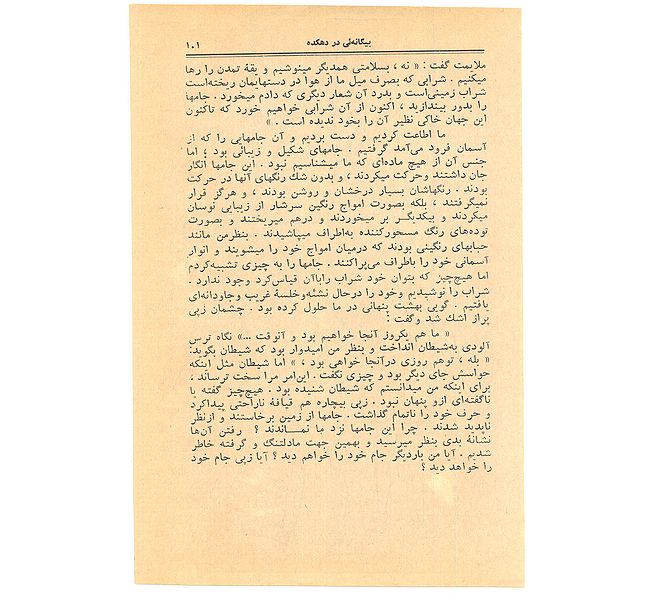 بیگانه‌ئی در دهکده
۱۰۱
ملایمت گفت : « نه ، بسلامتی همدیگر مینوشیم و بقهٔ تمدن را رها
میکنیم . شرابی که بصرف میل ما از هوا در دستهایمان ریخته‌است
شراب زمینی‌است و بدرد آن شعار دیگری که دادم میخورد . جامها
را بدور بیندازید ، اکنون از آن شرابی خواهیم خورد که تاکنون
این جهان خاکی نظیر آن را بخود ندیده است . »
ما اطاعت کردیم و دست بردیم و آن جامهایی را که از
آسمان فرود می‌آمد گرفتیم . جامهای شکیل و زیبائی بود ، اما
جنس آن از هیچ ماده‌ای که ما میشناسیم نبود . این جامها انگار
جان داشتند وحرکت میکردند ، و بدون شك رنگهای آنها در حرکت
بودند . رنگهاشان بسیار درخشان و روشن بودند ، و هرگز قرار
نمیگرفتند ، بلکه بصورت امواج رنگین سرشار از زیبایی نوسان
میکردند و بیکدیگر بر میخوردند و درهم میریختند و بصورت
توده‌های رنگ مسحورکننده به‌اطراف میپاشیدند . بنظرمن مانند
حبابهای رنگینی بودند که درمیان امواج خود را میشویند و انوار
آسمانی خود را باطراف می‌پراکنند . جامها را به چیزی تشبیه‌کردم
اما هیچ‌چیز که بتوان خود شراب راباآن قیاس‌کرد وجود ندارد .
شراب را نوشیدیم وخود را درحال نشئه‌وخلسهٔ غریب وجاودانه‌ای
یافتیم . گویی بهشت پنهانی در ما حلول کرده بود . چشمان زپی
پراز اشك شد وگفت :
« ما هم یکروز آنجا خواهیم بود و آنوقت ...» نگاه ترس
آلودی به‌شیطان انداخت و بنظر من امیدوار بود که شیطان بگوید:
« بله ، توهم روزی درآنجا خواهی بود ، » اما شیطان مثل اینکه
حواسش جای دیگر بود و چیزی نگفت . این‌امر مرا سخت ترساند ،
برای اینکه من میدانستم که شیطان شنیده بود . هیچ‌چیز گفته یا
ناگفته‌ای ازو پنهان نبود . زپی بیچاره هم قیافهٔ ناراحتی پیداکرد
و حرف خود را ناتمام گذاشت . جامها از زمین برخاستند و ازنظر
ناپدید شدند . چرا این جامها نزد ما نمــاندند ؟ رفتن آن‌ها
نشانهٔ بدی بنظر میرسید و بهمین جهت مادلتنگ و گرفته خاطر
شدیم . آیا من باردیگر جام خود را خواهم دید ؟ آیا زپی جام خود
را خواهد دید ؟